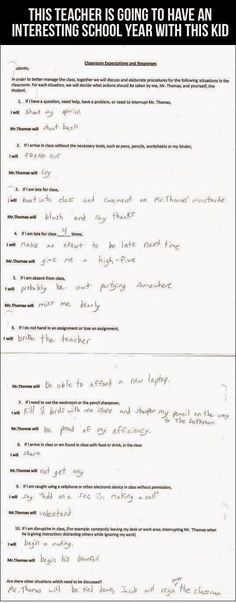 THIS TEACHER IS GOING TO HAVE AN
INTERESTING SCHOOL YEAR WITH THIS KID
Classroom Expectations and Responses
In order to better manage the class, together we will discuss and elaborate procedures for the following situations in the
classroom. For each situation, we will decide what actions should be taken by me, Mr. Thomas, and yourself, the
student.
1. If I have a question, need help, have a problem, or need to interrupt Mr. Thomas,
I will shout my opinion
Mr.Thomas will shout back
2. If I arrive in class without the necessary tools, such as pens, pencils, worksheets or my binder,
I will FREAK OUT
Mr.Thomas will cry
3. If I am late for class,
I will burst into class and comment on Mr. Thomas' moustache
Mr.Thomas will blush and say thanks
4. If I am late for class 4 times,
I will make an effort to be late next time
Mr.Thomas will give me a high-five
5. If I am absent from class,
I will probably be out partying somewhere
Mr.Thomas will miss me dearly
6. If I do not hand in an assignment or lose an assignment,
I will bribe the teacher
Mr.Thomas will be able to afford a new laptop.
7. If I need to use the washroom or the pencil sharpener,
I will kill 2 birds with one stone and sharpen my pencil on the way
to the bathroom
Mr.Thomas will be proud of my efficiency.
8. If I arrive in class or am found in class with food or drink, in the class
I will share
Mr.Thomas will not get any
9. If I am caught using a cellphone or other electronic device in class without permission,
I will say "hold on a sec I'm making a call"
Mr.Thomas will understand
10. If I am disruptive in class, (For example: constantly leaving my desk or work area; interrupting Mr. Thomas when
he is giving instruction; distracting others while ignoring my work)
I will begin a mutiny.
Mr.Thomas will begin his downfall
Are there other situations which need to be discussed?
Mr. Thomas will be tied down, Jacob will reign over the classroom